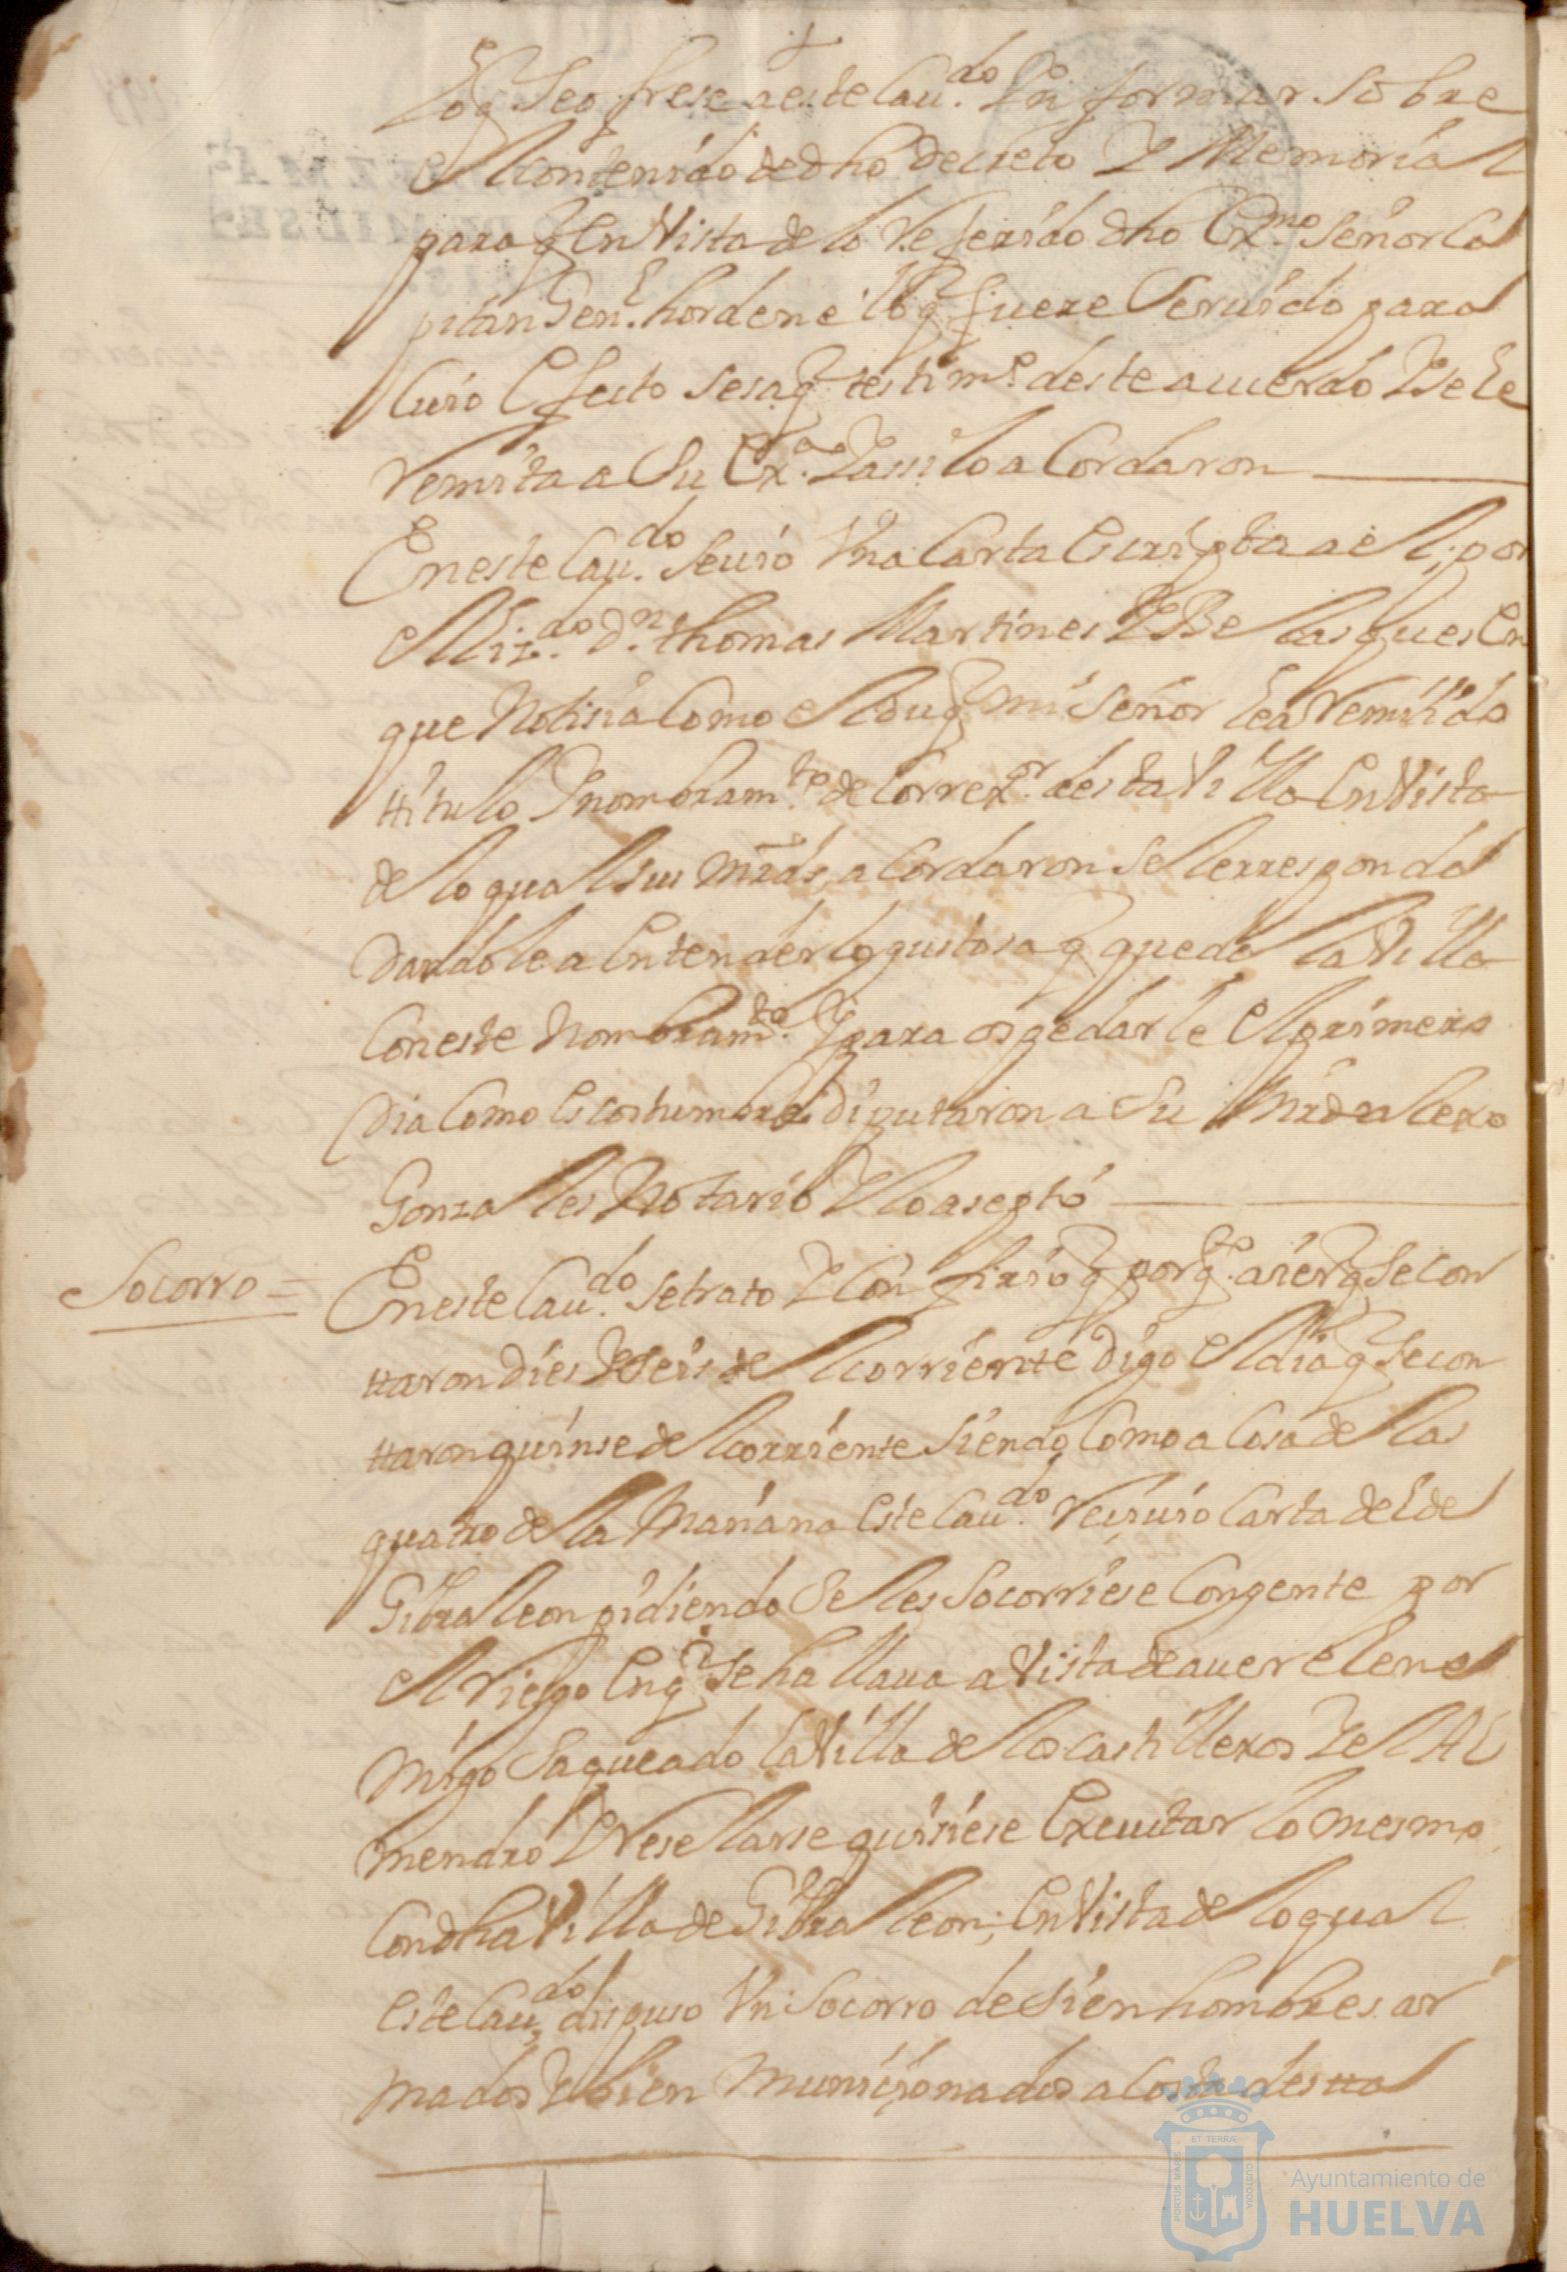 loq Seofrese a este Cau.do Informar Sobre
el contenido de dho decreto Y Memorial
para q En Vista de lo Referido dho Exmo Señor Ca
pitan Gen.l hordene lo q fuere Seruido para
Cuio Efecto se saq testim.o deste acuerdo Y se le
Remita a Su Ex.a Y assi lo a Cordaron
En este Cau.do se uio Vna Carta Escripta a el por
el Liz.do D.n thomas Martines Y Belasques En
que Notisia Como el duq mi Señor le a Remitido
titulo Y nombram.to de Correx.or desta Villa En Vista
de lo qual sus mrds a Cordaron se le rresponda
Dandole a Entender lo gustosa q queda la Villa
Con este Nombram.to Y para ospedarle el primero
Dia Como es costumbre diputaron a Su Mrd alexo
Gonzales Notario Y lo asepto
Socorro =
En este Cau.do se trato Y Confirio q por q.to aier q se con
taron dies Y seis de el corriente digo el dia q se con
taron quinse de el corriente siendo Como a Cosa de las
quatro de la Mañana este Cau.do Resiuio Carta de el de
Gibraleon pidiendo Se les Socorriese Con gente por
el Riesgo En q se hallaua a Vista de auer el ene
migo Saqueado la Villa de los Castillexos Y el Al
mendro Y Reselarse quisiese Executar lo mesmo
Con dha Villa de Gibraleon; En Vista de lo qual
este Cau.do dispuso Vn Socorro de sien hombres ar
mados Y bien Munisionados a Costa desta
ET TERRÆ
PORTUS MARIS
CUSTODIA
Ayuntamiento de
HUELVA